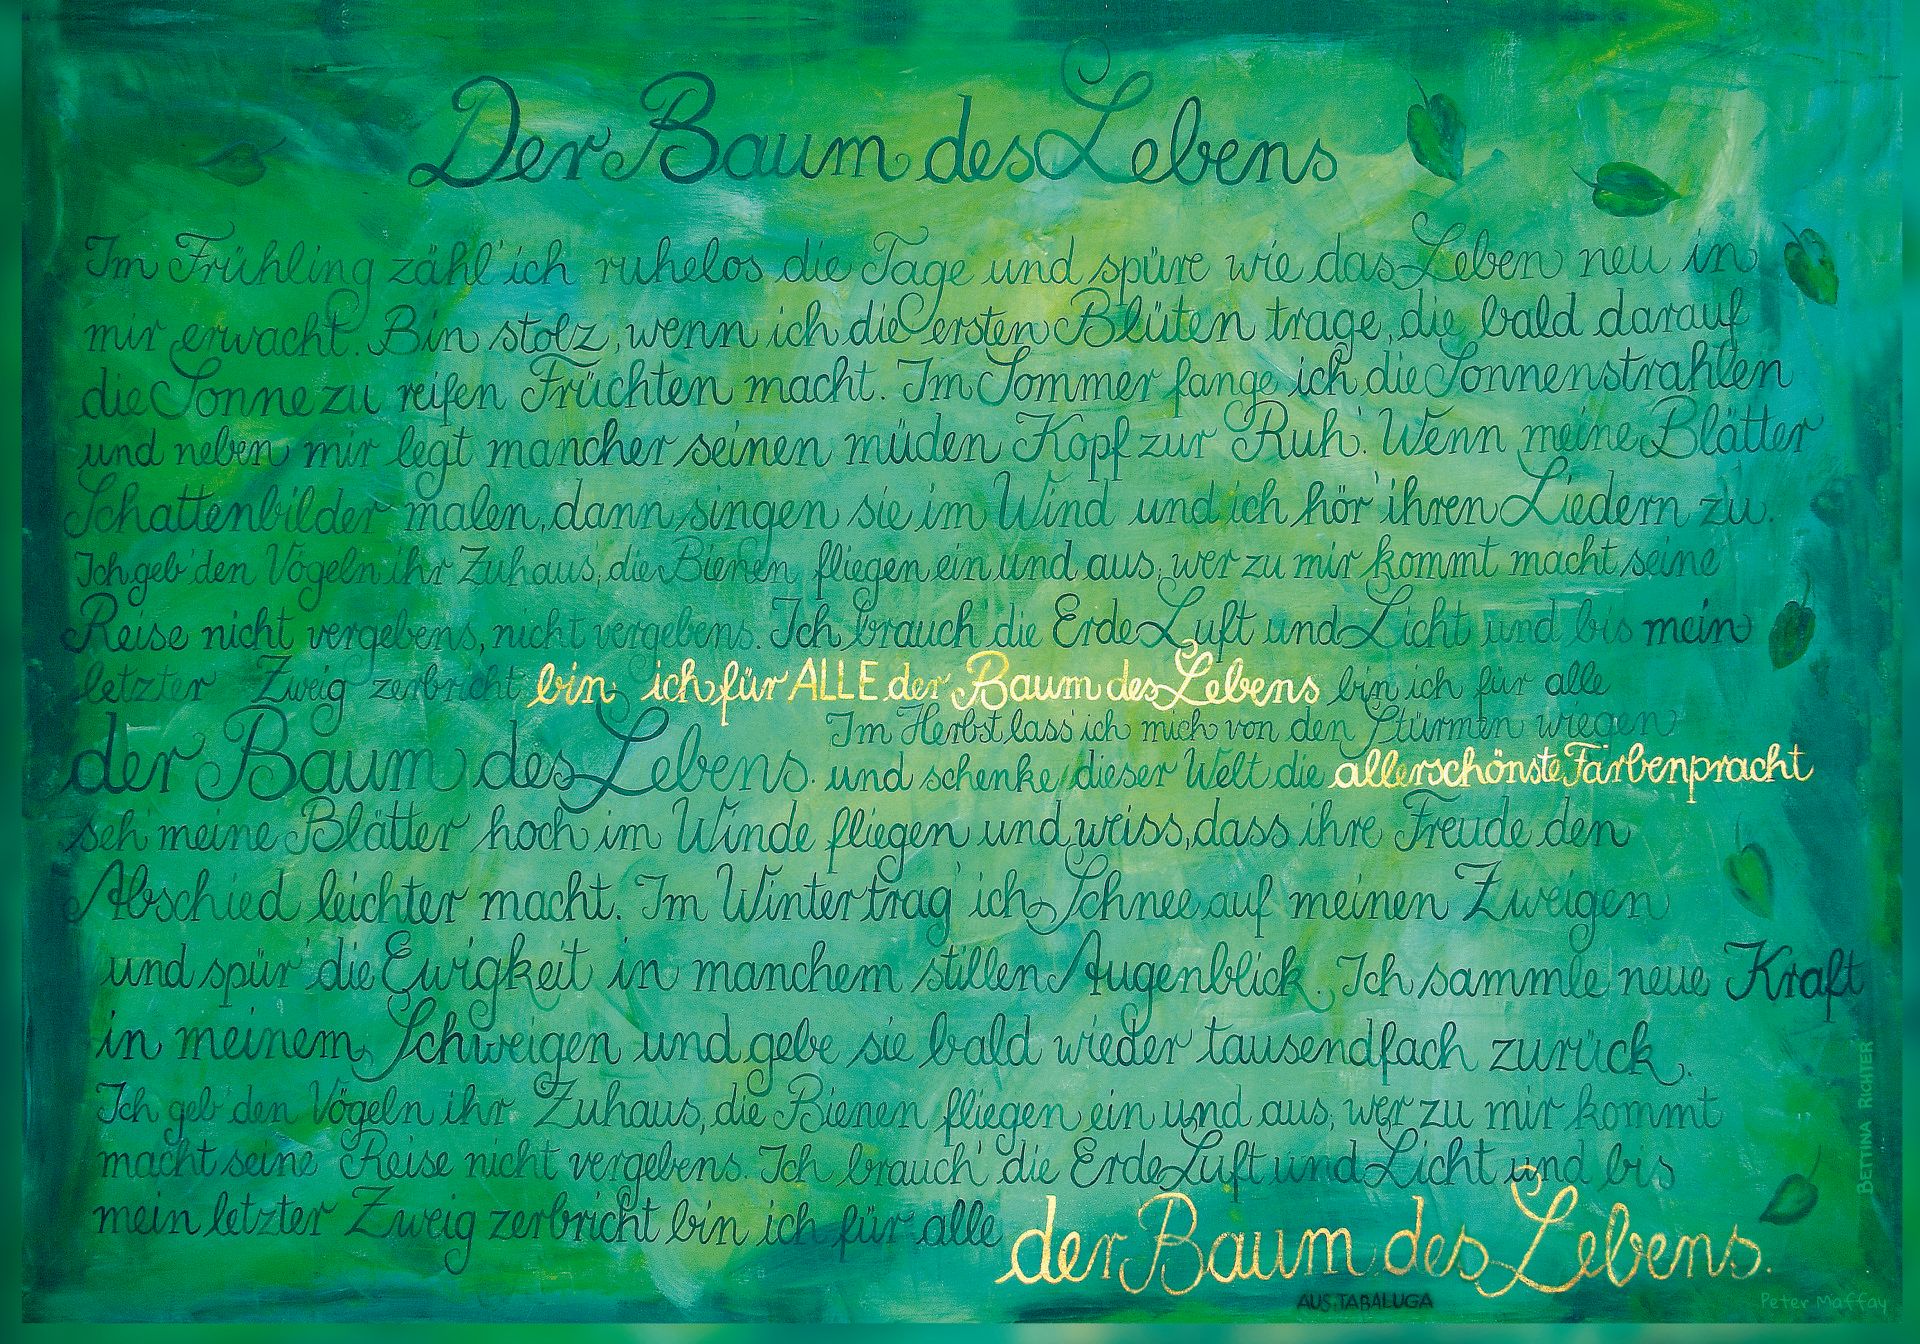 Der Baum des Lebens
Im Frühling zähl' ich ruhelos die Tage und spüre wie das Leben neu in
mir erwacht. Bin stolz, wenn ich die ersten Blüten trage, die bald darauf
die Sonne zu reifen Früchten macht. Im Sommer fange ich die Sonnenstrahlen
und neben mir legt mancher seinen müden Kopf zur Ruh'. Wenn meine Blätter
Schattenbilder malen, dann singen sie im Wind und ich hör' ihren Liedern zu.
Ich geb' den Vögeln ihr Zuhaus, die Bienen fliegen ein und aus, wer zu mir kommt macht seine
Reise nicht vergebens, nicht vergebens. Ich brauch die Erde Luft und Licht und bis mein
letzter Zweig zerbricht bin ich für ALLE der Baum des Lebens bin ich für alle
der Baum des Lebens.
Im Herbst lass' ich mich von den Stürmen wiegen
und schenke dieser Welt die allerschönste Farbenpracht
seh' meine Blätter hoch im Winde fliegen und weiss, dass ihre Freude den
Abschied leichter macht. Im Winter trag' ich Schnee auf meinen Zweigen
und spür' die Ewigkeit in manchem stillen Augenblick. Ich sammle neue Kraft
in meinem Schweigen und gebe sie bald wieder tausendfach zurück.
Ich geb' den Vögeln ihr Zuhaus, die Bienen fliegen ein und aus, wer zu mir kommt
macht seine Reise nicht vergebens. Ich brauch' die Erde Luft und Licht und bis
mein letzter Zweig zerbricht bin ich für alle der Baum des Lebens.
AUS TABALUGA
Peter Maffay
BETTINA RICHTER